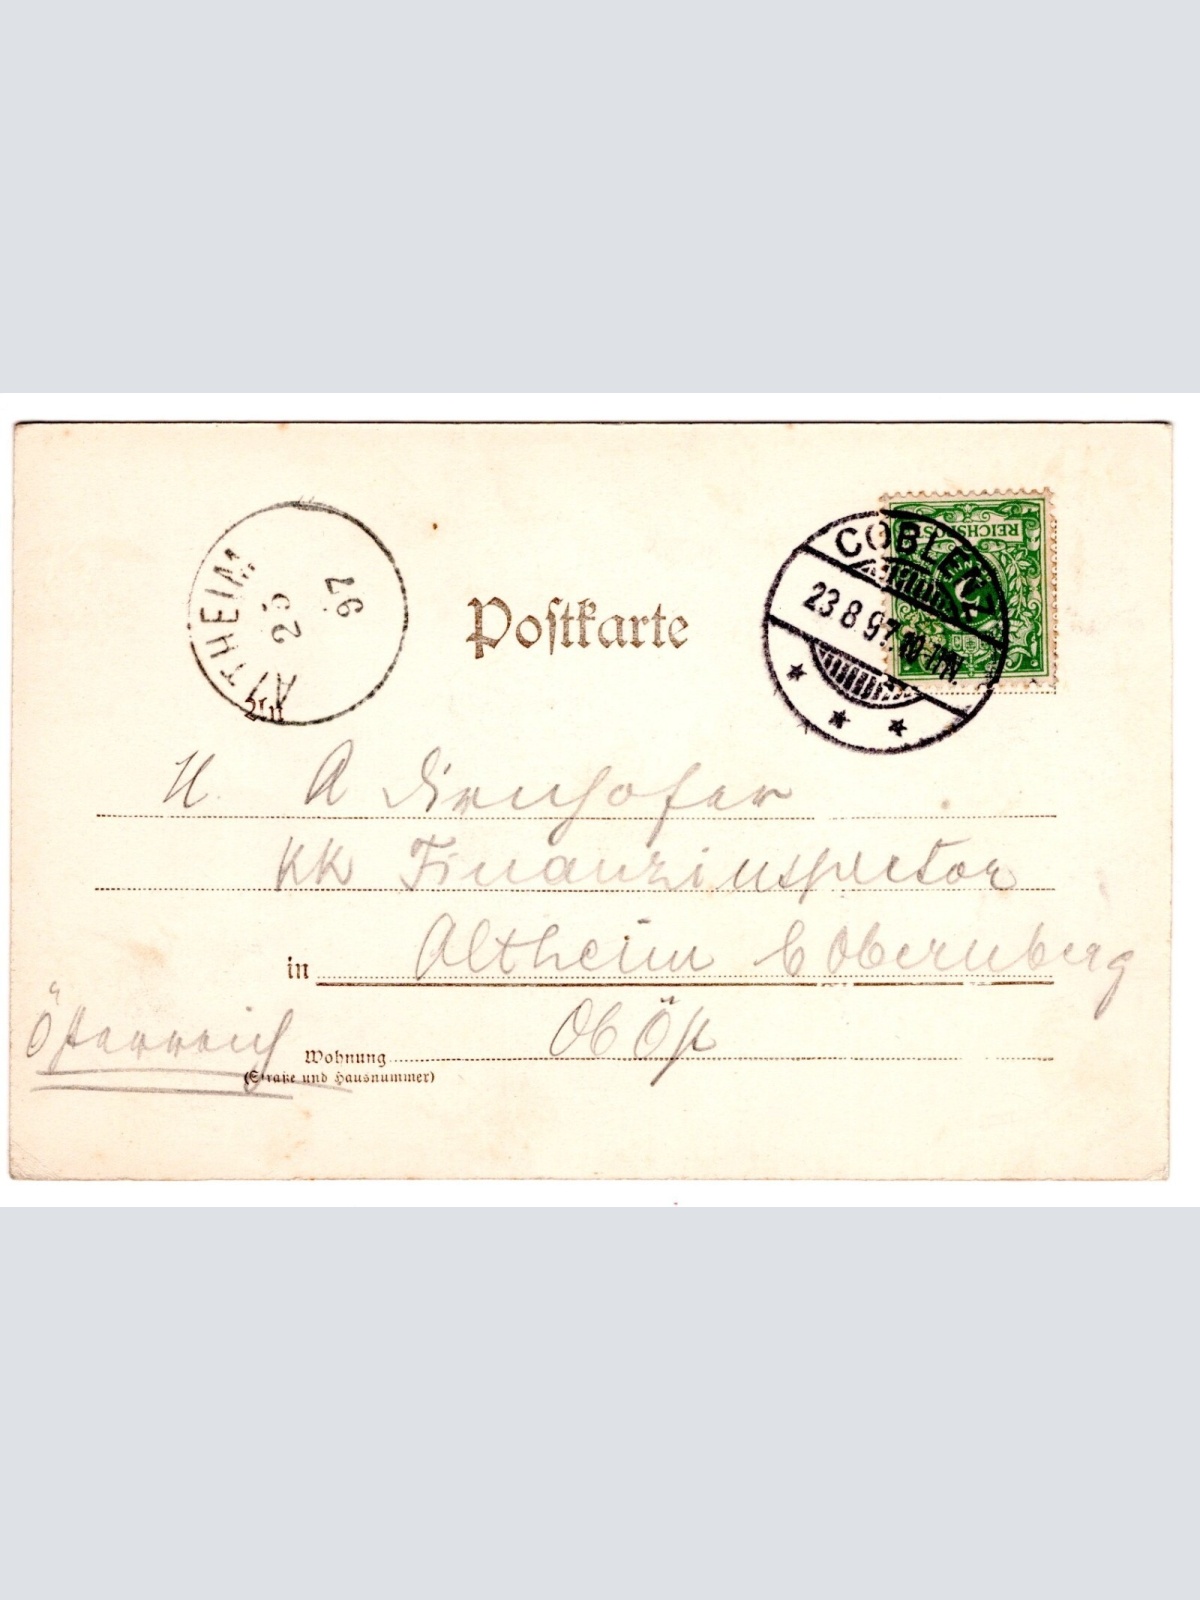 Postkarte
REICHSPOST
COBLENZ
23 8 97. 10-11N.
ALTHEIM
25
97
An
H. A
KK Finanzinspector
in Altheim b Obernberg
Ob Öst
Österreich
Wohnung
(Straße und Hausnummer)